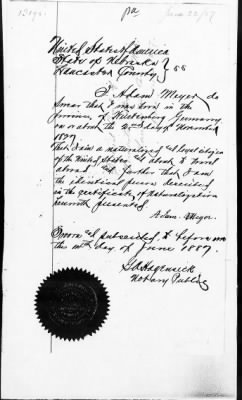 June 22/87
United States of America
State of Nebraska } SS
Lancaster County,
I Adam Meyer do
swear that I was born in the
Province of Wurtemberg Germany
on or about the 2nd day of November
1837
That I am a naturalized & loyal citizen
of the United States & about to travel
abroad & further that I am
the identical person described
in the certificate of Naturalization
herewith presented
Adam Meyer.
Sworn & subscribed to before me
this day of June 1887.
Notary Public